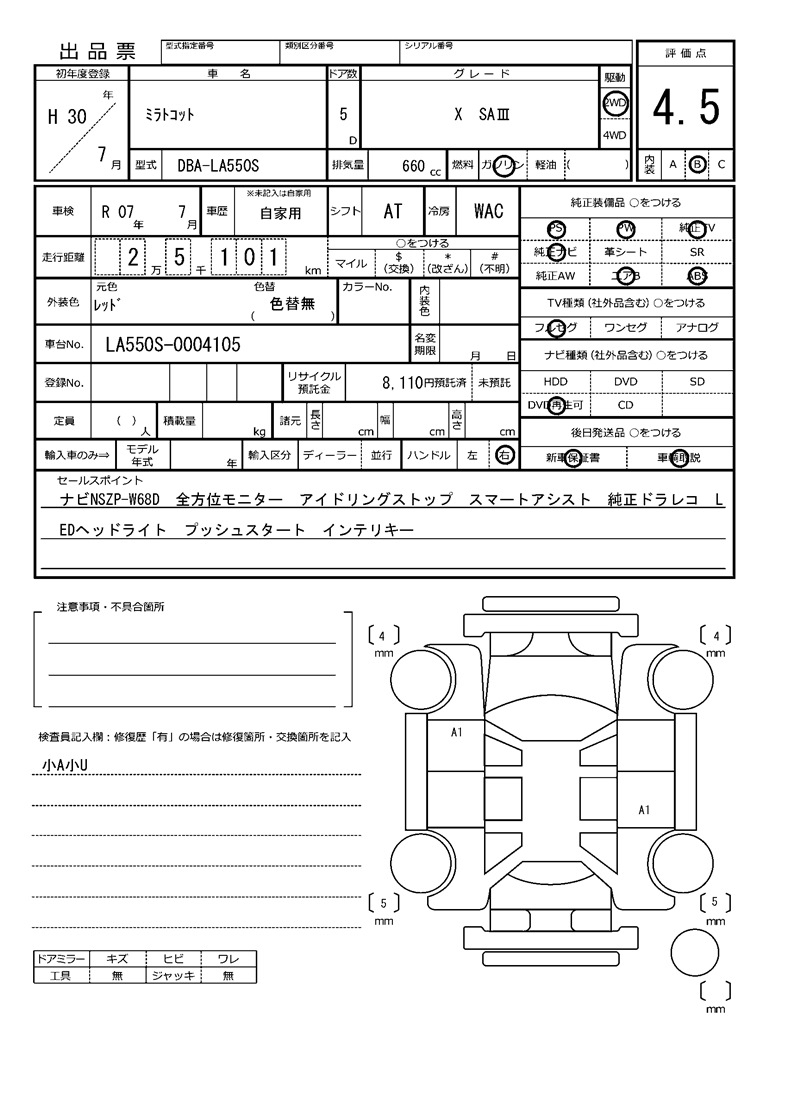 出品票
型式指定番号 類別区分番号 シリアル番号
初年度登録 車名 ドア数 グレード 駆動 評価点
H 30 年 7 月 ミラトコット 5 D X SAⅢ 2WD 4WD 4.5
型式 DBA-LA550S 排気量 660 cc 燃料 ガソリン 軽油 ( ) 内装 A B C
車検 R 07 年 7 月 車歴 ※未記入は自家用 自家用 シフト AT 冷房 WAC
純正装備品 ○をつける
PS PW 純正TV
走行距離 2 万 5 千 1 0 1 km ○をつける マイル $ (交換) * (改ざん) # (不明)
純正ナビ 革シート SR
純正AW エアB ABS
外装色 元色 レッド 色替 色替無 ( ) カラーNo. 内装色
TV種類(社外品含む)○をつける
フルセグ ワンセグ アナログ
車台No. LA550S-0004105 名変期限 月 日
ナビ種類(社外品含む)○をつける
登録No. リサイクル預託金 8,110円預託済 未預託
HDD DVD SD
DVD再生可 CD
定員 ( ) 人 積載量 kg 諸元 長さ cm 幅 cm 高さ cm
後日発送品 ○をつける
輸入車のみ⇒ モデル年式 年 輸入区分 ディーラー 並行 ハンドル 左 右
新車保証書 車輌取説
セールスポイント
ナビNSZP-W68D 全方位モニター アイドリングストップ スマートアシスト 純正ドラレコ L
EDヘッドライト プッシュスタート インテリキー
注意事項・不具合箇所
4 mm
4 mm
検査員記入欄:修復歴「有」の場合は修復箇所・交換箇所を記入
小A小U
A1
A1
5 mm
5 mm
mm
ドアミラー キズ ヒビ ワレ
工具 無 ジャッキ 無